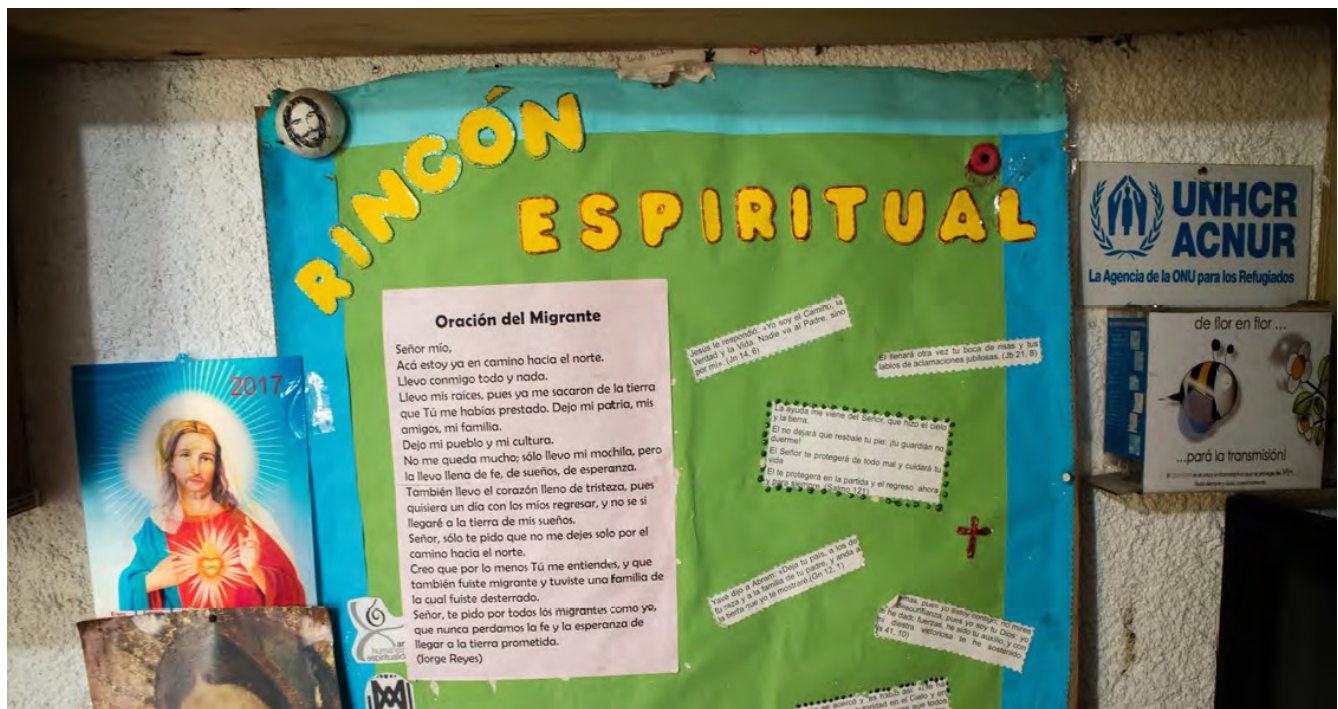 RINCÓN
ESPIRITUAL
UNHCR
ACNUR
La Agencia de la ONU para los Refugiados
2017
Oración del Migrante
Señor mío,
Acá estoy ya en camino hacia el norte.
Llevo conmigo todo y nada.
Llevo mis raíces, pues ya me sacaron de la tierra
que Tú me habías prestado. Dejo mi patria, mis
amigos, mi familia.
Dejo mi pueblo y mi cultura.
No me queda mucho; sólo llevo mi mochila, pero
la llevo llena de fe, de sueños, de esperanza.
También llevo el corazón lleno de tristeza, pues
quisiera un día con los míos regresar, y no se si
llegaré a la tierra de mis sueños.
Señor, sólo te pido que no me dejes solo por el
camino hacia el norte.
Creo que por lo menos Tú me entiendes, y que
también fuiste migrante y tuviste una familia de
la cual fuiste desterrado.
Señor, te pido por todos los migrantes como yo,
que nunca perdamos la fe y la esperanza de
llegar a la tierra prometida.
(Jorge Reyes)
Jesús le respondió: «Yo soy el Camino, la
Verdad y la Vida. Nadie va al Padre, sino
por mí». (Jn 14, 6)
El llenará otra vez tu boca de risas y tus
labios de aclamaciones jubilosas. (Jb 21, 8)
La ayuda me viene del Señor, que hizo el cielo
y la tierra.
El no dejará que resbale tu pie: ¡tu guardián no
duerme!
El Señor te protegerá de todo mal y cuidará tu
vida
El te protegerá en la partida y el regreso ahora
y para siempre. (Salmo 121)
Yavé dijo a Abram: «Deja tu país, a los de
tu raza y a la familia de tu padre, y anda a
la tierra que yo te mostraré.(Gn 12, 1)
pues yo estoy contigo; no mires
desconfianza, pues yo soy tu Dios; yo
he dado fuerzas, he sido tu auxilio, y con
mi diestra victoriosa te he sostenido.
41, 10)
se acercó y les habló así:
en el Cielo y en
que todos
de flor en flor...
...pará la transmisión!